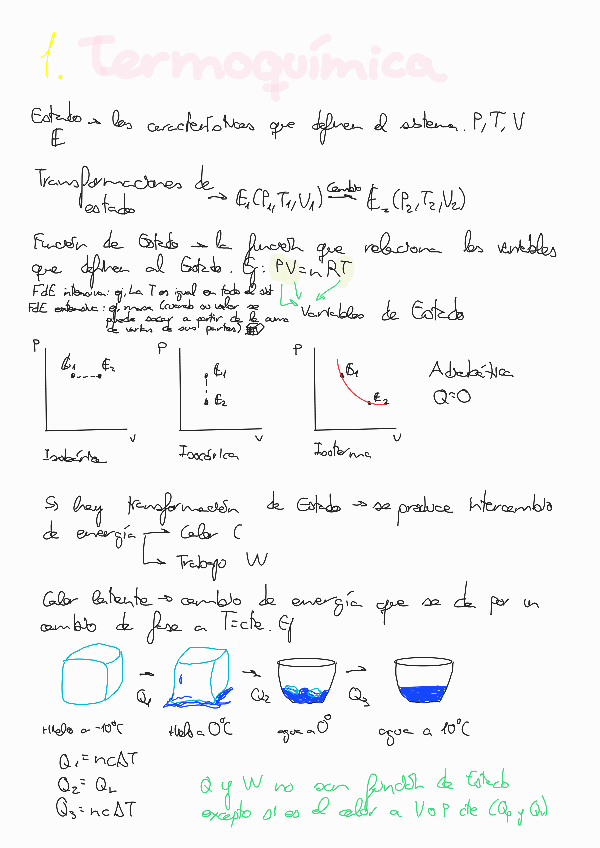 1. Termoquímica
Estado → las características que definen el sistema. P, T, V
E
Transformaciones de
estado → E₁(P₁, T₁, V₁) Cambio→ E₂ (P₂, T₂, V₂)
Función de Estado → la función que relaciona las variables
que definen al Estado. Ej: PV=nRT
FdE intensiva: ej. La T es igual en todo el sist
FdE extensiva: ej. masa (cuando su valor se
puede sacar a partir de la suma
de varias de sus partes)
Variables de Estado
P E₁ E₂ V
Isobárica
P E₁ E₂ V
Isocórica
P E₁ E₂ V
Isoterma
Adiabática
Q=0
Si hay transformación de Estado → se produce intercambio
de energía → Calor C
→ Trabajo W
Calor latente → cambio de energía que se da por un
cambio de fase a T=cte. Ej
→ Q₁ → Q₂ → Q₃
Hielo a -10ºC Hielo a 0ºC agua a 0º agua a 10ºC
Q₁=ncΔT
Q₂= QL
Q₃=ncΔT
Q y W no son función de Estado
excepto si es el calor a V o P cte (Qp y Qv)